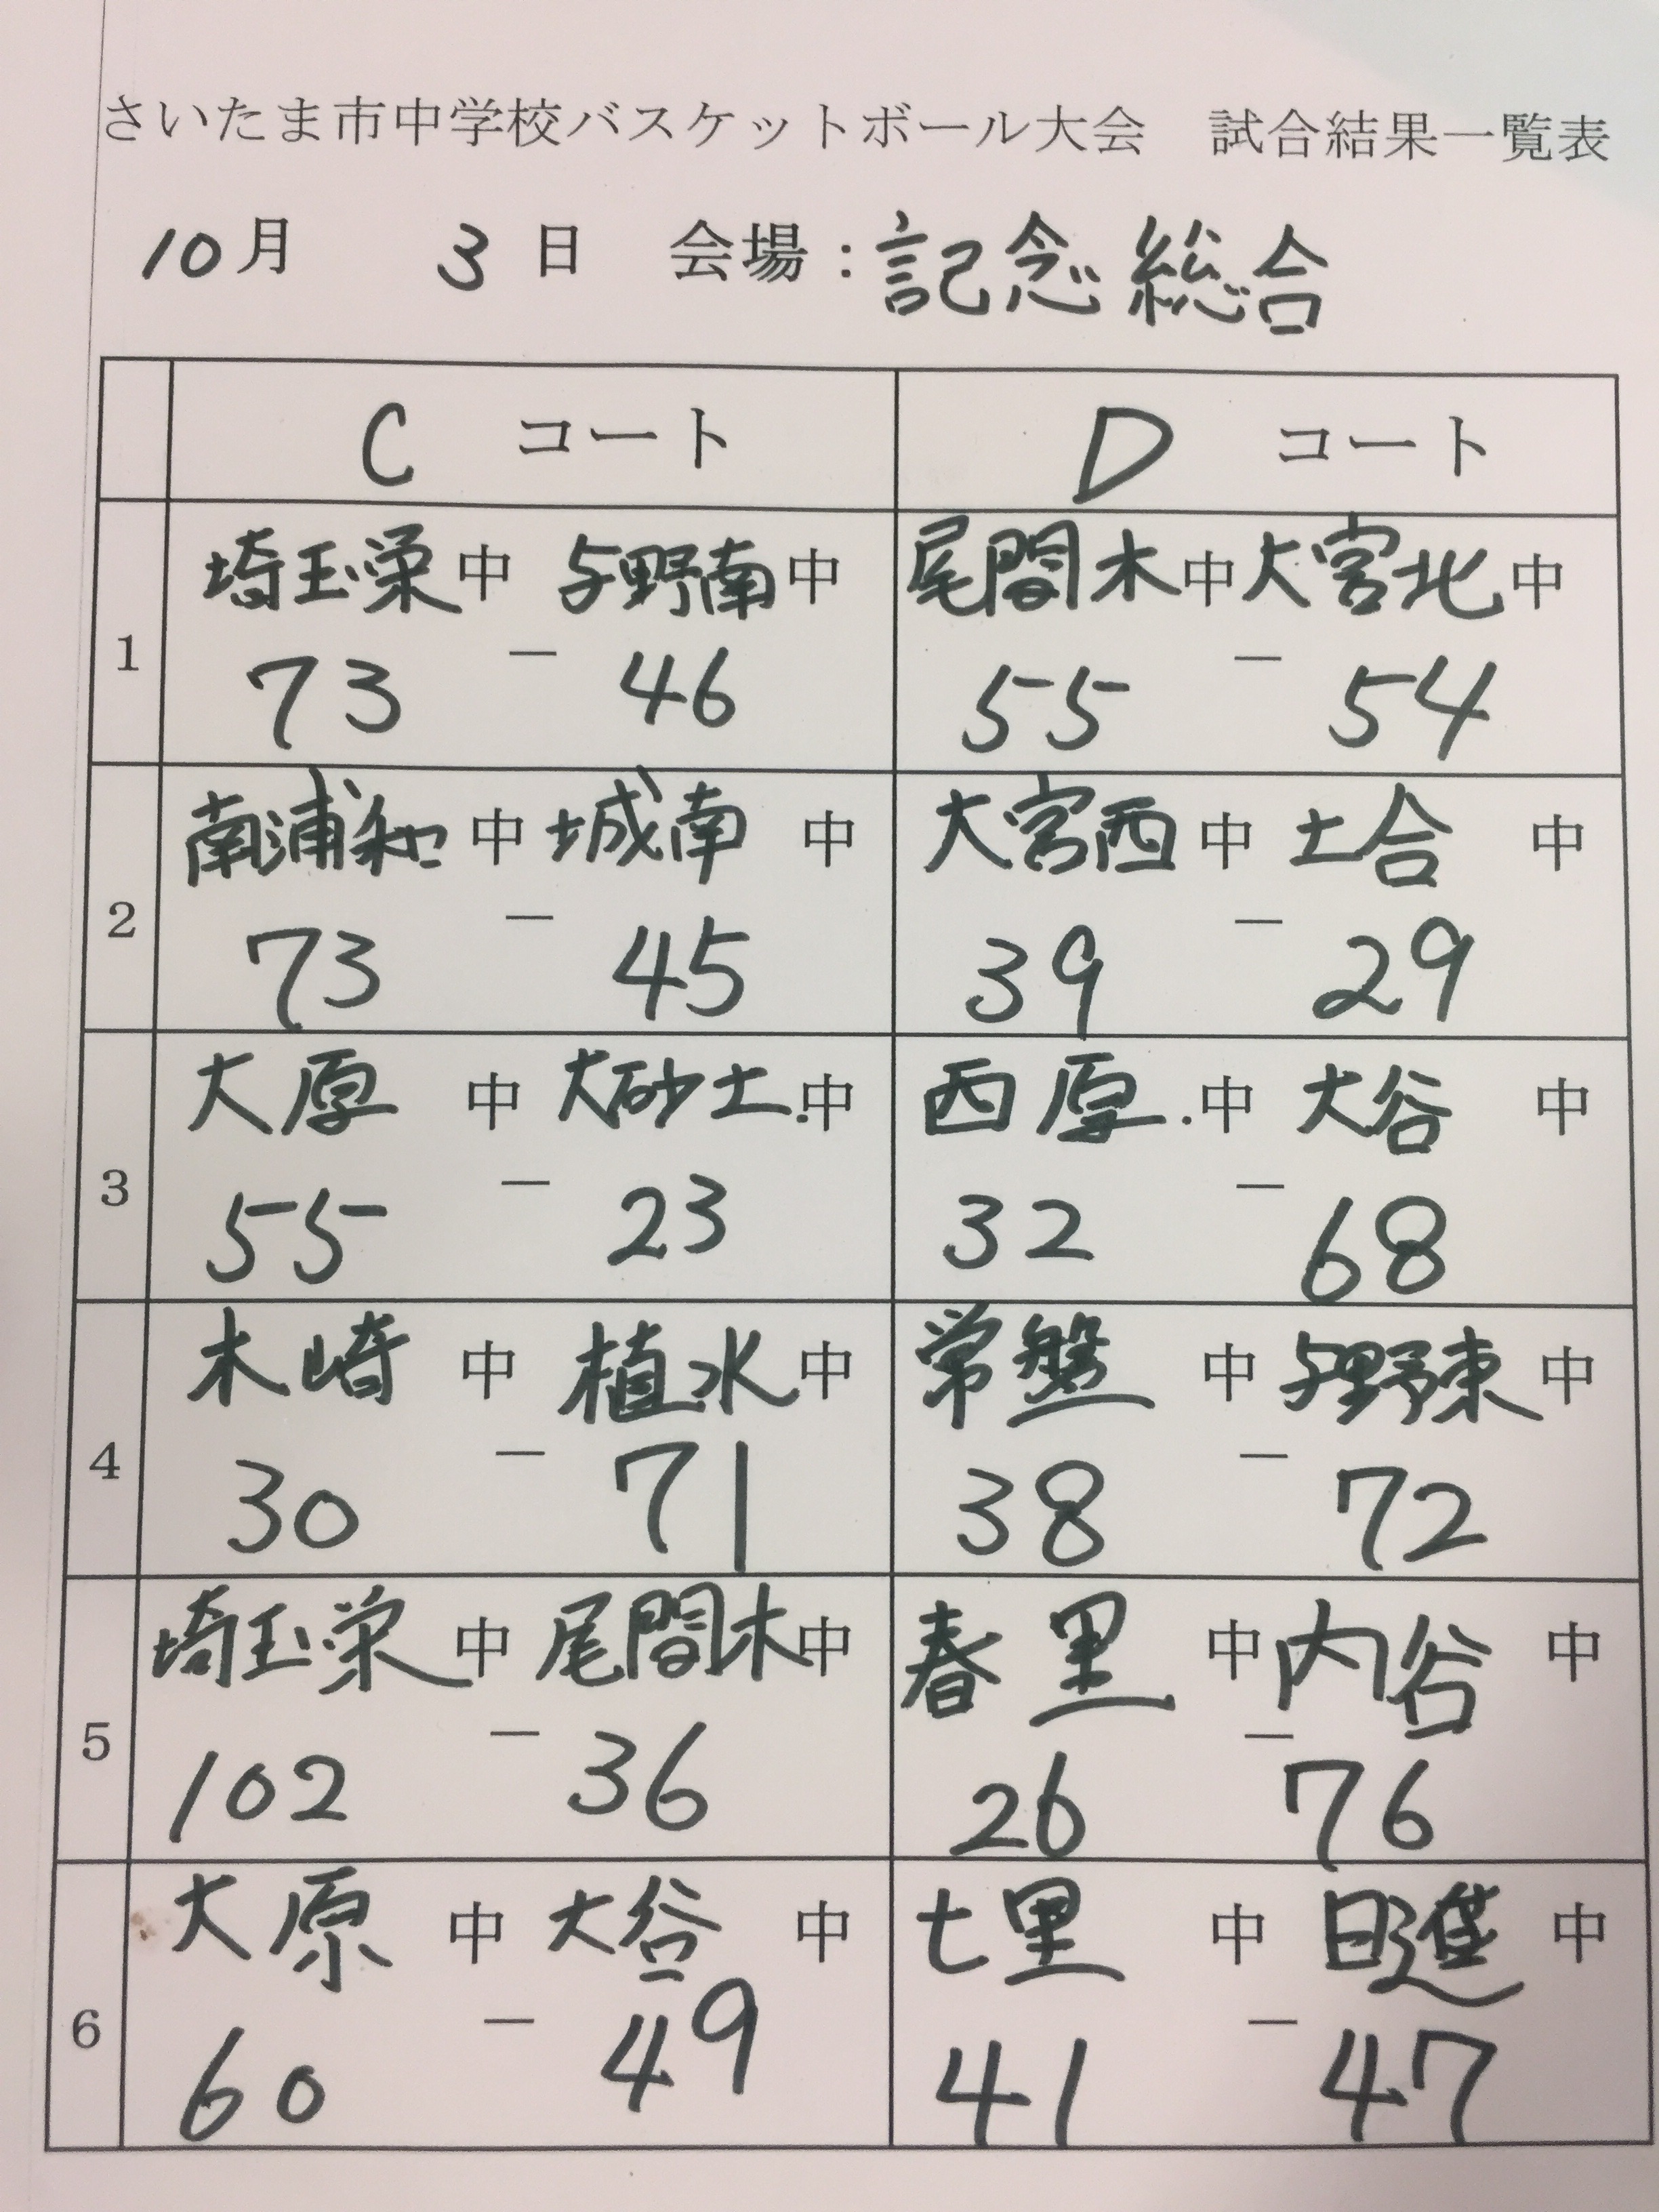 さいたま市中学校バスケットボール大会　試合結果一覧表
10月　3日　会場：記念総合
C コート　D コート
1
埼玉栄中　与野南中　尾間木中　大宮北中
73 － 46　55 － 54
2
南浦和中　城南中　大宮西中　土合中
73 － 45　39 － 29
3
大原中　大砂土中　西原中　大谷中
55 － 23　32 － 68
4
木崎中　植水中　常盤中　与野東中
30 － 71　38 － 72
5
埼玉栄中　尾間木中　春里中　内谷中
102 － 36　26 － 76
6
大原中　大谷中　七里中　日進中
60 － 49　41 － 47